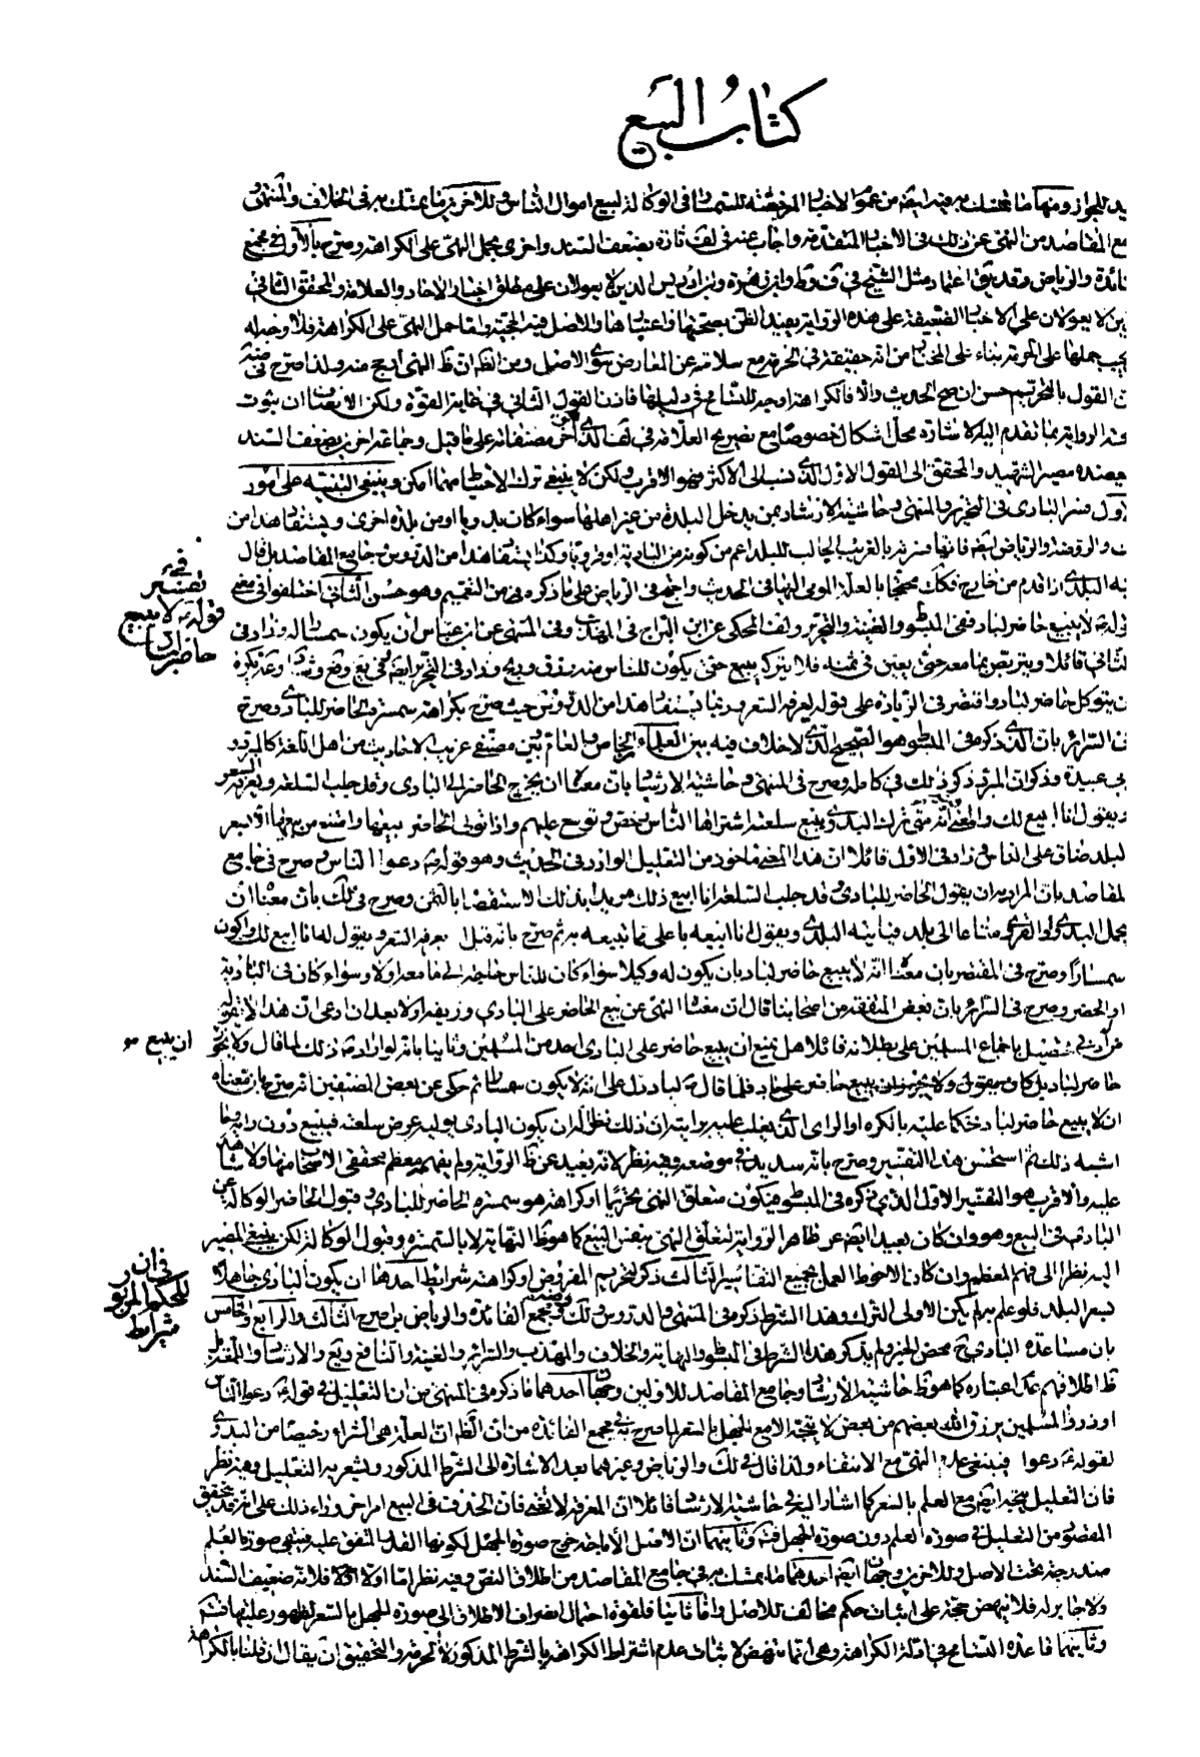 كتاب البيع
للجواز ومنها ما تمسك به فيه ايضا من عموم الاخبار المرخصة للسمسار في الوكالة لبيع اموال الناس وللآخرين ما يتمسك به في الخلاف والمنتهى
المقاصد من النهى عن ذلك في الاخبار المتقدمة واجاب عنه في لف تارة بضعف السند واخرى بحمل النهى على الكراهة وصرح بالاول في مجمع
والرياض وقد يق اعتماد مثل الشيخ في وابن حمزة وابن ادريس الذين لا يعولان على مطلق اخبار الآحاد والعلامة والمحقق الثاني
لا يعولان على الاخبار الضعيفة على هذه الرواية يفيد الظن بصحتها واعتبارها والاصل فيه الحجية واما حمل النهى على الكراهة فلا وجه له
حملها على الحرمة بناء على المختار من انه حقيقة في الحرمة مع سلامته عن المعارض سوى الاصل ومن الظ ان ظ النهى ارجح منه ولذا صرح في
القول بالتحريم حسن ان صح الحديث والا فالكراهة اوجه للتسامح في دليلها فاذن القول الثاني في غاية القوة ولكن الانصاف ان ثبوت
الرواية بما تقدم اليه الاشارة محل اشكال خصوصا مع تصريح العلامة في لف الذي آخر مصنفاته على ما قيل وجماعة اخرى بضعف السند
مصير الشهيد والمحقق الى القول الاول الذي نسب الى الاكثر فهو الاقرب ولكن لا ينبغى ترك الاحتياط مهما امكن وينبغى التنبيه على امور
فسر البادى في التحرير والمنتهى وحاشية الارشاد بمن يدخل البلدة من غير اهلها سواء كان بدويا او من بلدة اخرى ويستفاد هذا من
والروضة والرياض ايضا فانها فسرته بالغريب الجالب للبلد اعم من كونه من البادية او قرويا وكذا يستفاد هذا من الدروس وجامع المقاصد
البلدى اذا قدم من خارج فكك محتجا بالعلة المومى اليها في الحديث واجمع في الرياض على ما ذكره من التعميم وهو حسن الثاني اختلفوا في معنى
قوله لا يبيع حاضر لباد ففي المبسوط والغنية والتحرير ولف المحكى عن ابن البراج في المهذب وفى المنتهى عن ابن عباس ان يكون سمسارا له وزاد في
في تفسير قوله لا يبيع حاضر لباد
الثاني قائلا ويتربص بما معه حتى يعين في ثمنه فلا يتركه يبيع حتى يكون للناس منه رزق وربح وزاد في التحرير ايضا
يتوكل حاضر لباد واقتصر في الزيادة على قوله يعرفه السعر وربما يستفاد هذا من الدروس حيث صرح بكراهة سمسرة الحاضر للبادى وصرح
في السرائر بان الذي ذكره في المبسوط هو الصحيح الذي لا خلاف فيه بين العلماء الخاص والعام وبين مصنفى غريب الاحاديث من اهل اللغة كالمبرد
وابى عبيدة وذكر ان المبرد ذكر ذلك في كامله وصرح في المنتهى وحاشية الارشاد بان معناه ان يخرج الحاضر الى البادى وقد جلب السلعة ويعرفه السعر
ويقول انا ابيع لك والمعنى انه متى ترك البدوى يبيع سلعته اشتراها الناس برخص وتوسع عليهم واذا تولى الحاضر بيعها وامتنع من بيعها الا بسعر
البلد ضاق على الناس وزاد في الاول قائلا ان هذا المعنى ماخوذ من التعليل الوارد في الحديث وهو قوله دعوا الناس وصرح في جامع
المقاصد بان المراد به ان يقول الحاضر للبادى وقد جلب السلعة انا ابيع ذلك مريدا بذلك الاستقصاء بالثمن وصرح في لك بان معناه ان
يحمل البدوى او القروى متاعا الى بلد فياتيه البلدى ويقول انا ابيعه باعلى مما تبيعه به ثم صرح بانه قيل يعرفه السعر ويقول له انا ابيع لك واكون
سمسارا وصرح في المختصر بان معناه انه لا يبيع حاضر لباد بان يكون له وكيلا سواء كان للناس حاجة الى ما معه اولا وسواء كان في البادية
او الحضر وصرح في السرائر بان بعض المتفقهة من اصحابنا قال ان معناه النهى عن بيع الحاضر على البادى وزيفه اولا بعد ان ادعى ان هذا لا يقوله
بتفضيل باجماع المسلمين على بطلانه قائلا هل يمنع ان يبيع حاضر على البادى احد من المسلمين وثانيا بانه لو اراد ذلك لما قال ولا يجوز
ان يبيع
حاضر لباد بل كان يقول ولا يجوز ان يبيع حاضر على باد فلما قال لباد دل على انه لا يكون سمسارا ثم حكى عن بعض المصنفين انه صرح بان معناه
ان لا يبيع حاضر لباد متحكما عليه بالكره او الراى الذي يغلب عليه يرى ان ذلك نظرا له او ان يكون البادى يوليه عرض سلعته فيبيع دون رايه وما
اشبه ذلك ثم استحسن هذا التفسير وصرح بانه سديد في موضعه وفيه نظر لانه بعيد عن ظ الرواية ولم يفهمه معظم محققى الاصحاب منها ولا شاهد
عليه والاقرب هو التفسير الاول الذي ذكره في المبسوط فيكون متعلق النهى تحريما او كراهة هو سمسرة الحاضر للبادى وقبول الحاضر الوكالة عن
البادى في البيع وهو وان كان بعيدا ايضا عن ظاهر الرواية لتعلق النهى بنفس البيع كما هو ظ النهاية لا بالسمسرة وقبول الوكالة لكن ينبغى المصير
اليه نظرا الى فهم المعظم وان كان الاحوط العمل بجميع التفاسير الثالث ذكر لتحريم المفروض او كراهته شرايط احدها ان يكون البادى جاهلا
في ان للحكم المزبور شرايط
بسعر البلد فلو علم به لم يكن الاولى الترك وهذا الشرط ذكره في المنتهى والدروس ولك والروضة ومجمع الفائدة والرياض بل صرح الثالث والرابع والخامس
بان مساعدة البادى ح محض الخير ولم يذكر هذا الشرط في المبسوط والنهاية والخلاف والمهذب والسرائر والغنية والنافع ويع والارشاد والمختصر بل
ظ اطلاقهم عدم اعتباره كما هو ظ حاشية الارشاد وجامع المقاصد للاولين وجهان احدهما ما ذكره في المنتهى من ان التعليل في قوله دعوا الناس
او ذروا المسلمين يرزق الله بعضهم من بعض لا يتجه الا مع الجهل بالسعر كما صرح به في مجمع الفائدة من ان الظ ان العلة هي الشراء رخيصا من البدوى
لقوله دعوا فينبغى عدم النهى مع الانتفاء ولذا قال في لك والرياض وغيرهما بعد الاشارة الى الشرط المذكور ويشعر به التعليل وفيه نظر
فان التعليل يتجه ايضا مع العلم بالسعر كما اشار اليه في حاشية الارشاد قائلا ان المعرفة لا تغنى فان الحذق في البيع امر اخر وراء ذلك على انه قد يتحقق
المقصود من التعليل في صورة العلم دون صورة الجهل فتم وثانيهما ان الاصل الاباحة خرج صورة الجهل لكونها القدر المتفق عليه فيبقى صورة العلم
مندرجة تحت الاصل وللآخرين وجهان ايضا احدهما ما تمسك به في جامع المقاصد من اطلاق النص وفيه نظر اما اولا فلانه ضعيف السند
ولا جابر له فلا ينهض حجة على اثبات حكم مخالف للاصل واما ثانيا فلقوة احتمال انصراف الاطلاق الى صورة الجهل بالسعر لظهور غلبتها فتم
وثانيهما قاعدة التسامح في ادلة الكراهة وهى انما تنهض لاثبات عدم اشتراط الكراهة بالشرط المذكور لا الحرمة والتحقيق ان يقال ان قلنا بالكراهة